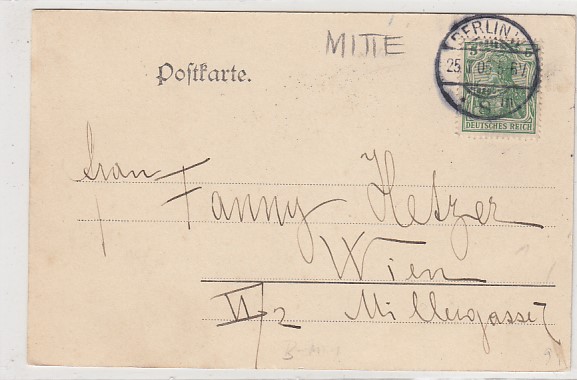 MITTE
BERLIN
25. 05
Postkarte.
DEUTSCHES REICH
Frau
Fanny Hetzer
Wien
VI/2 Millergasse 7